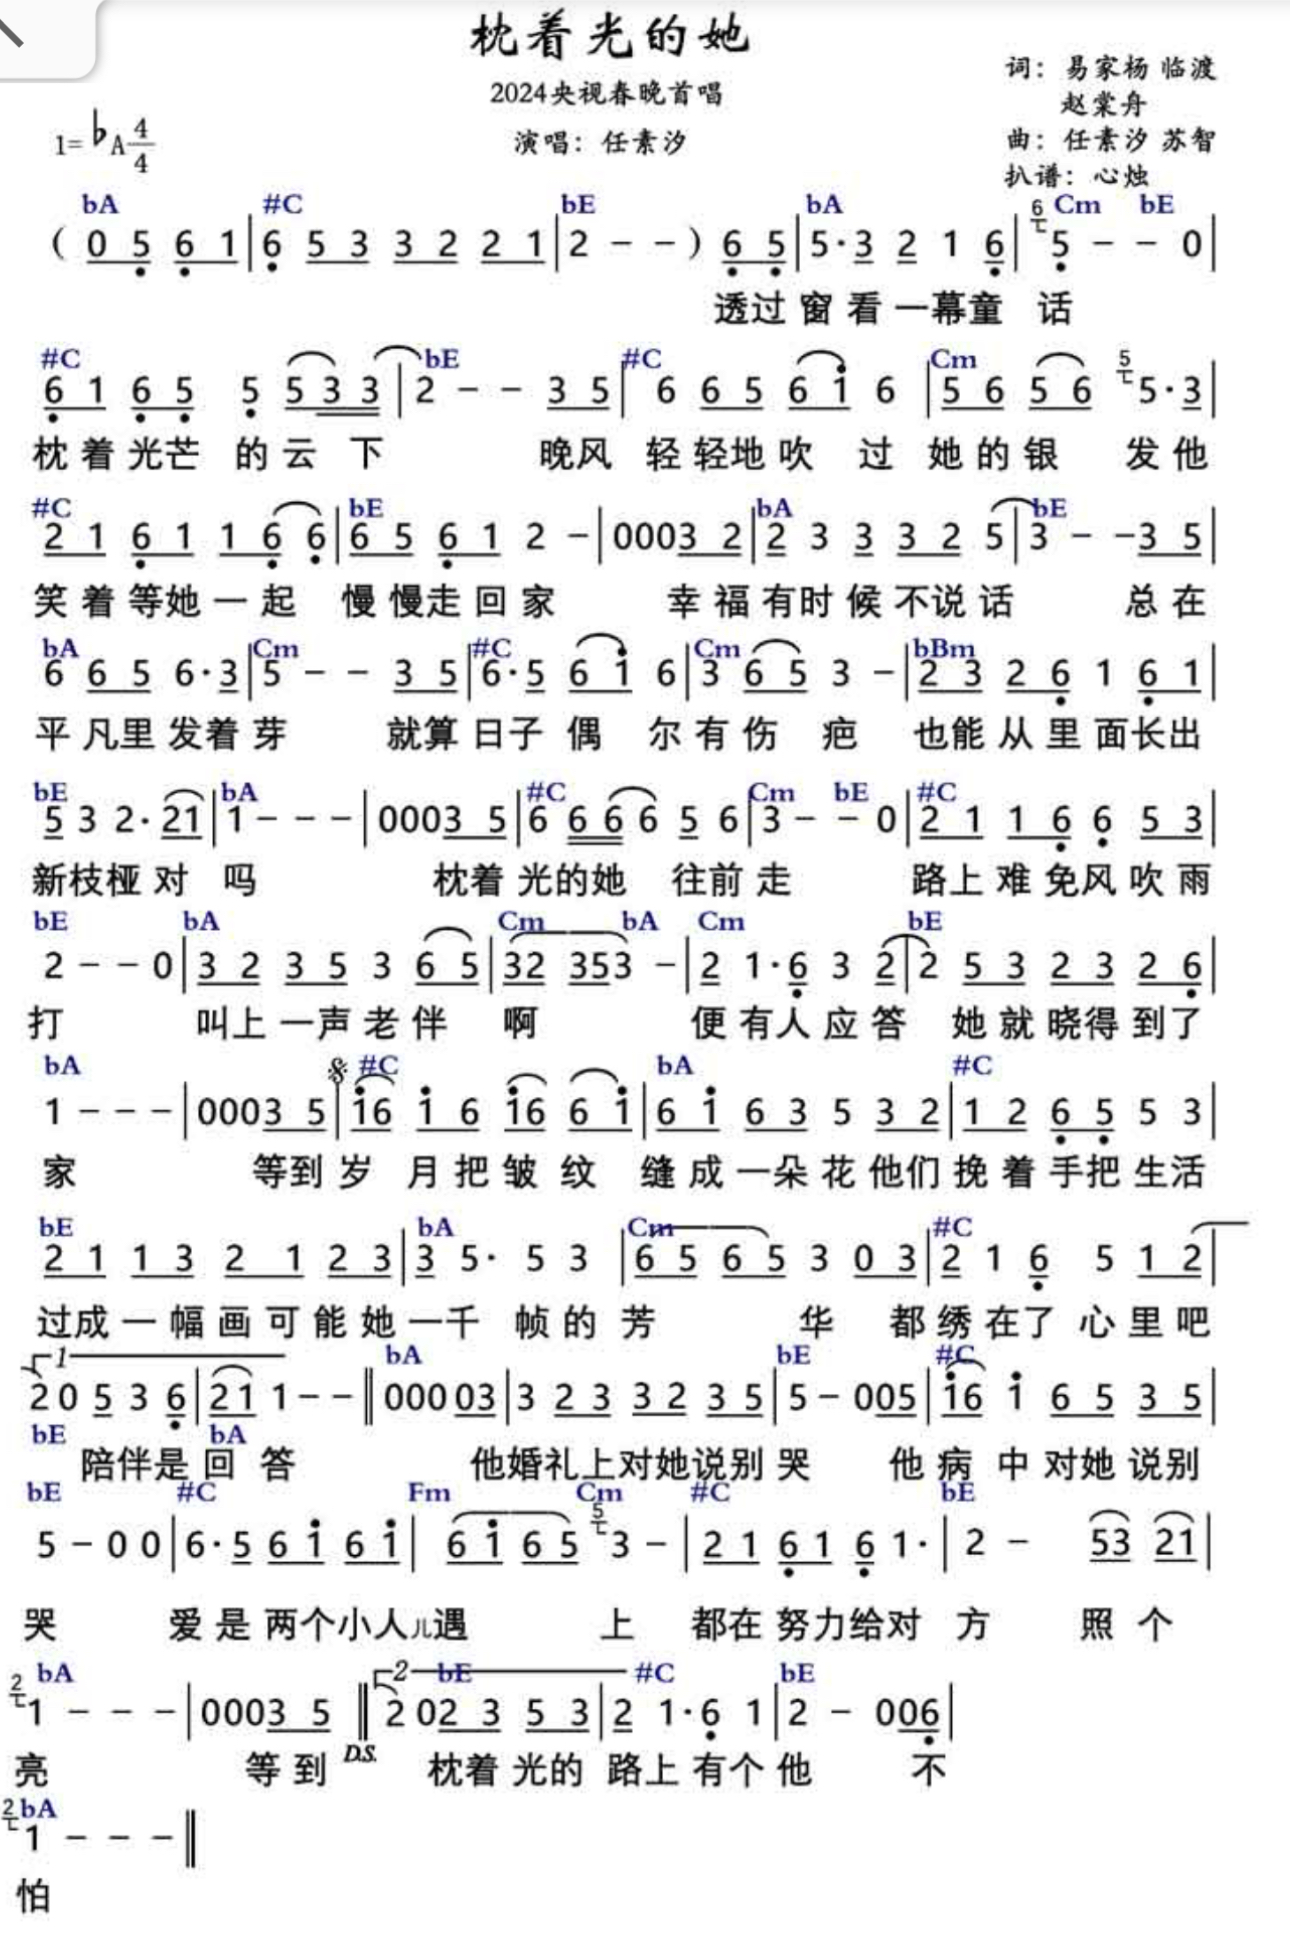 枕着光的她
2024央视春晚首唱
演唱：任素汐
词：易家杨 临渡
赵棠舟
曲：任素汐 苏智
扒谱：心烛
1=♭A 4/4
bA #C bE bA Cm bE
( 0 5 6 1 | 6 5 3 3 2 2 1 | 2 - - ) 6 5 | 5·3 2 1 6 | 6 5 - - 0 |
透过 窗 看 一幕童 话
#C bE #C Cm
6 1 6 5 5 5 3 3 | 2 - - 3 5 | 6 6 5 6 1 6 | 5 6 5 6 5 5·3 |
枕 着 光芒 的 云 下 晚风 轻 轻地 吹 过 她 的 银 发 他
#C bE bA bE
2 1 6 1 1 6 6 | 6 5 6 1 2 - | 0003 2 | 2 3 3 3 2 5 | 3 - -3 5 |
笑 着 等她 一 起 慢 慢走 回 家 幸 福 有时 候 不说 话 总 在
bA Cm #C Cm bBm
6 6 5 6·3 | 5 - - 3 5 | 6·5 6 1 6 | 3 6 5 3 - | 2 3 2 6 1 6 1 |
平 凡里 发着 芽 就算 日子 偶 尔 有 伤 疤 也能 从 里 面长出
bE bA #C Cm bE #C
5 3 2· 21 | 1 - - - | 0003 5 | 6 6 6 6 5 6 | 3 - - 0 | 2 1 1 6 6 5 3 |
新枝桠 对 吗 枕着 光的她 往前 走 路上 难 免风 吹 雨
bE bA Cm bA Cm bE
2 - - 0 | 3 2 3 5 3 6 5 | 32 353 - | 2 1·6 3 2 | 2 5 3 2 3 2 6 |
打 叫上 一声 老 伴 啊 便 有人 应 答 她 就 晓得 到了
bA #C bA #C
1 - - - | 0003 5 | 16 1 6 16 6 1 | 6 1 6 3 5 3 2 | 1 2 6 5 5 3 |
家 等到 岁 月 把 皱 纹 缝 成 一朵 花 他们 挽 着 手把 生活
bE bA Cm #C
2 1 1 3 2 1 2 3 | 3 5· 5 3 | 6 5 6 5 3 0 3 | 2 1 6 5 1 2 |
过成 一 幅 画 可 能 她 一千 帧 的 芳 华 都 绣 在了 心 里 吧
1 bA bE #C
2 0 5 3 6 | 21 1 - - ‖ 000 03 | 3 2 3 3 2 3 5 | 5 - 005 | 16 1 6 5 3 5 |
bE bA
陪伴是 回 答 他婚礼上对她说别 哭 他 病 中 对她 说别
bE #C Fm Cm #C bE
5 - 0 0 | 6·5 6 1 6 1 | 6 1 6 5 5 3 - | 2 1 6 1 6 1· | 2 - 53 21 |
哭 爱 是 两个小人儿遇 上 都在 努力给对 方 照 个
bA 2 bE #C bE
2 1 - - - | 0003 5 ‖ 2 02 3 5 3 | 2 1·6 1 | 2 - 006 |
亮 等 到 D.S. 枕着 光的 路上 有个 他 不
bA
2 1 - - - ‖
怕